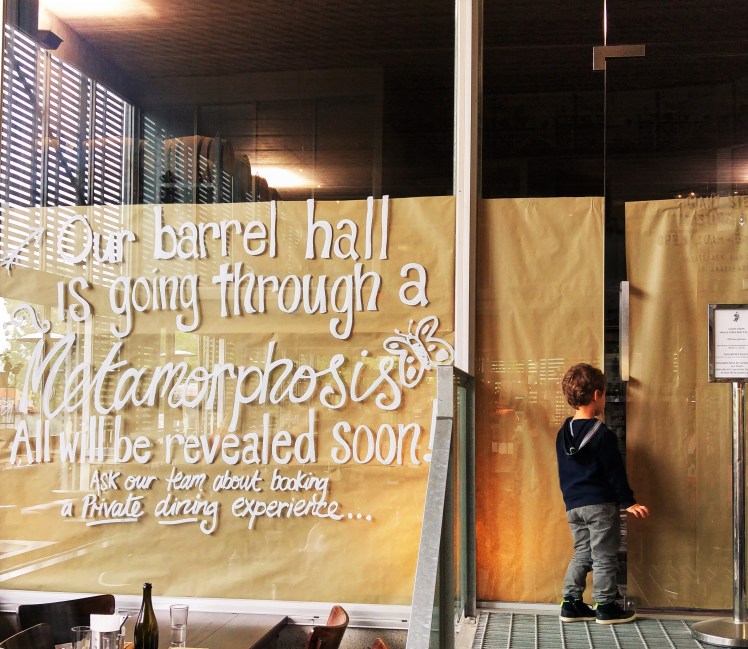 Our barrel hall
is going through a
Metamorphosis
All will be revealed soon!
ASK our team about booking
a Private dining experience...